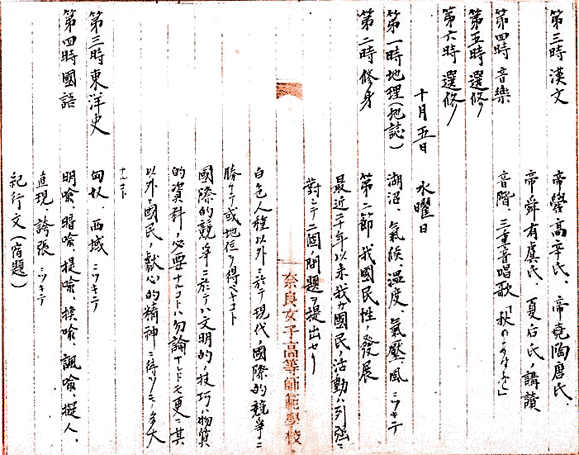 第三時 漢文 帝嚳高辛氏、帝堯陶唐氏、
帝舜有虞氏、夏后氏ノ講讀
第四時 音樂 音階、三重音唱歌「秋の
第五時 選修
第六時 選修
十月五日 水曜日
第一時 地理(地誌) 湖沼、氣候、溫度、氣壓、風ニツキテ
第二時 修身 第二節 我國民性ノ發展
最近二十年以來我ガ國民ノ活動ハ列強ニ
對シテ二個ノ問題ヲ提出セリ
奈良女子高等師範學校
白色人種以外ニ於テ現代ノ國際的競爭ニ
勝チテ或地位ヲ得ベキコト
國際的競爭ニ於テハ文明的ノ技巧ハ物質
的資料ノ必要ナルコトハ勿論ナレドモ更ニ其
以外ニ國民ノ獻心的精神ニ待ツコト多大
ナルコト
第三時 東洋史 匈奴、西域ニツキテ
第四時 國語 明喩、暗喩、提喩、換喩、諷喩、擬人、
直現、誇張ニツキテ
紀行文(宿題)